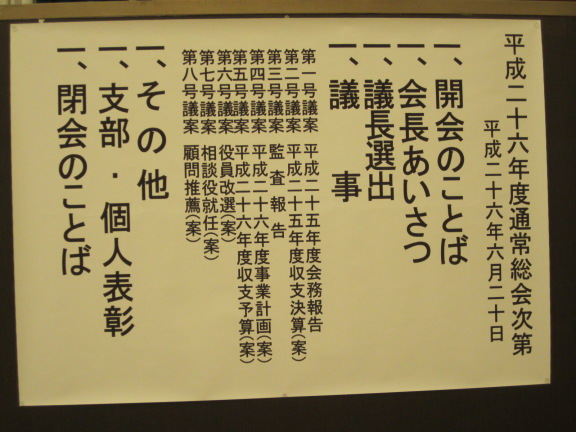 平成二十六年度通常総会次第
平成二十六年六月二十日
一、開会のことば
一、会長あいさつ
一、議長選出
一、議 事
第一号議案 平成二十五年度会務報告
第二号議案 平成二十五年度収支決算(案)
第三号議案 監査報告
第四号議案 平成二十六年度事業計画(案)
第五号議案 平成二十六年度収支予算(案)
第六号議案 役員改選(案)
第七号議案 相談役就任(案)
第八号議案 顧問推薦(案)
一、その他
一、支部・個人表彰
一、閉会のことば